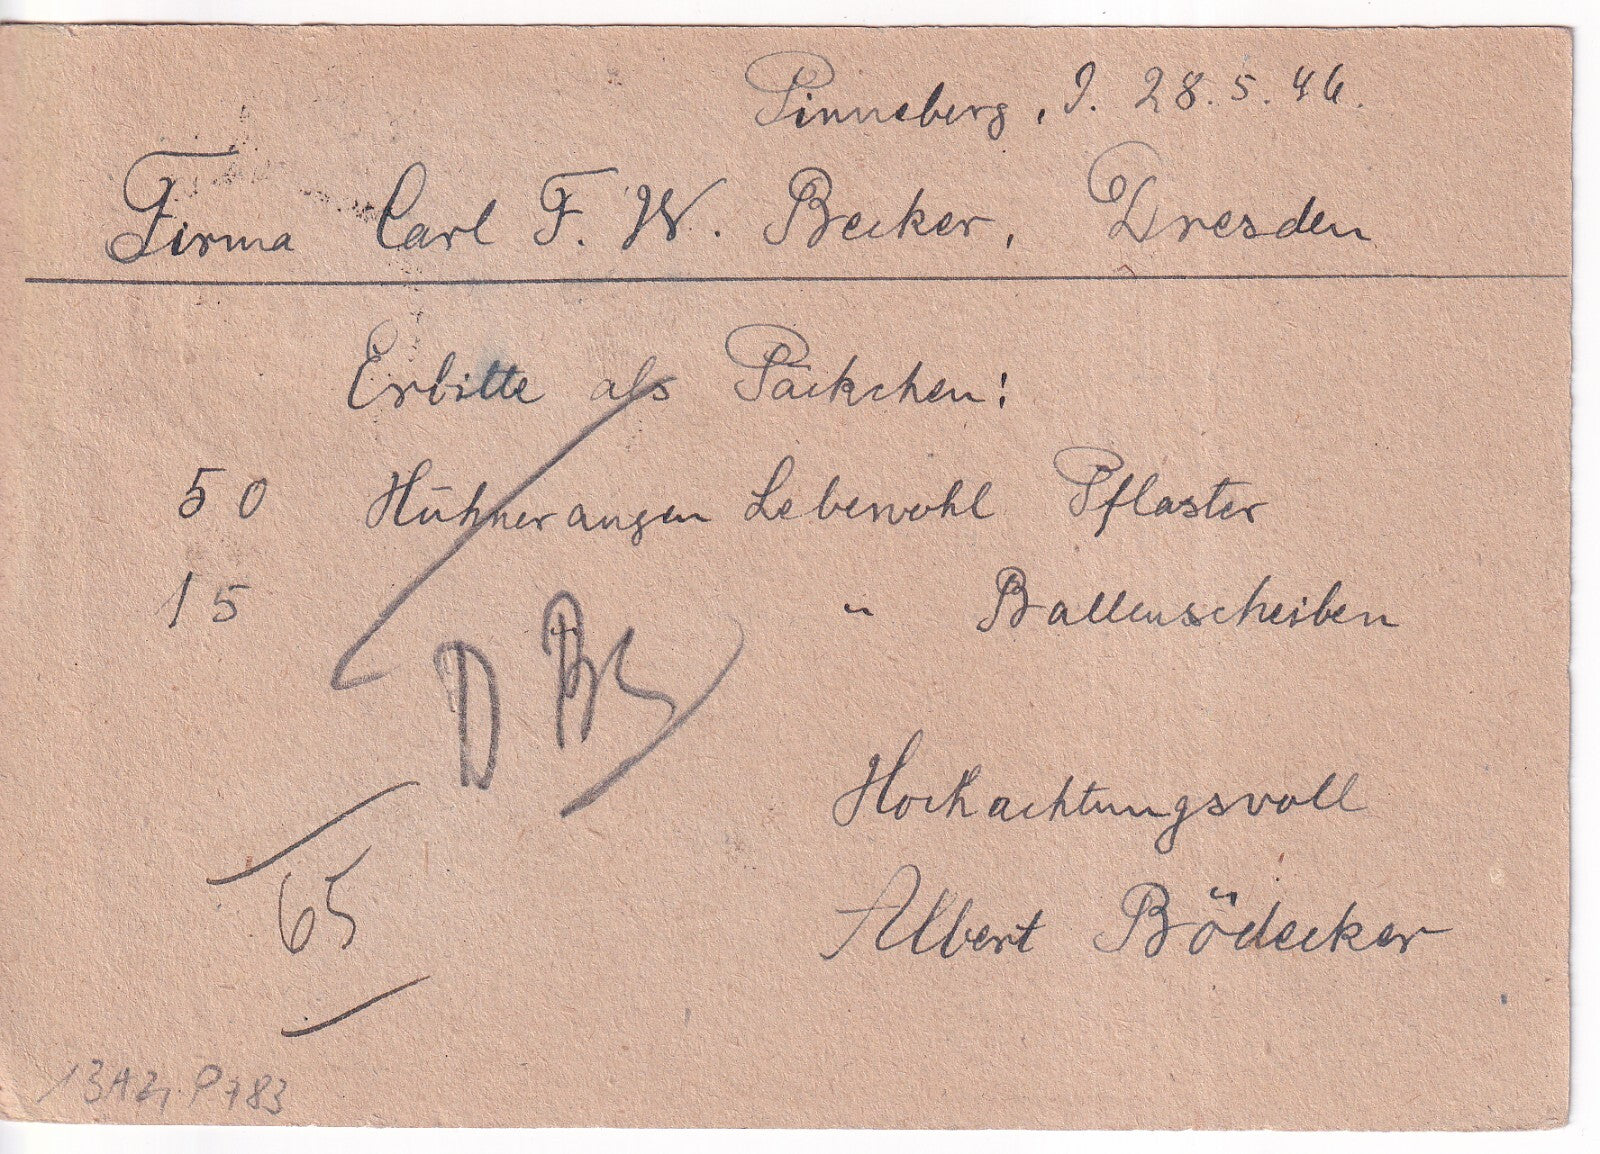 Pinneberg, d. 28.5.46.
Firma Carl F. W. Becker, Dresden
Erbitte als Päckchen!
50 Hühneraugen Lebewohl Pflaster
15 " Ballenscheiben
D
Hochachtungsvoll
65
Albert Bödecker
P 783